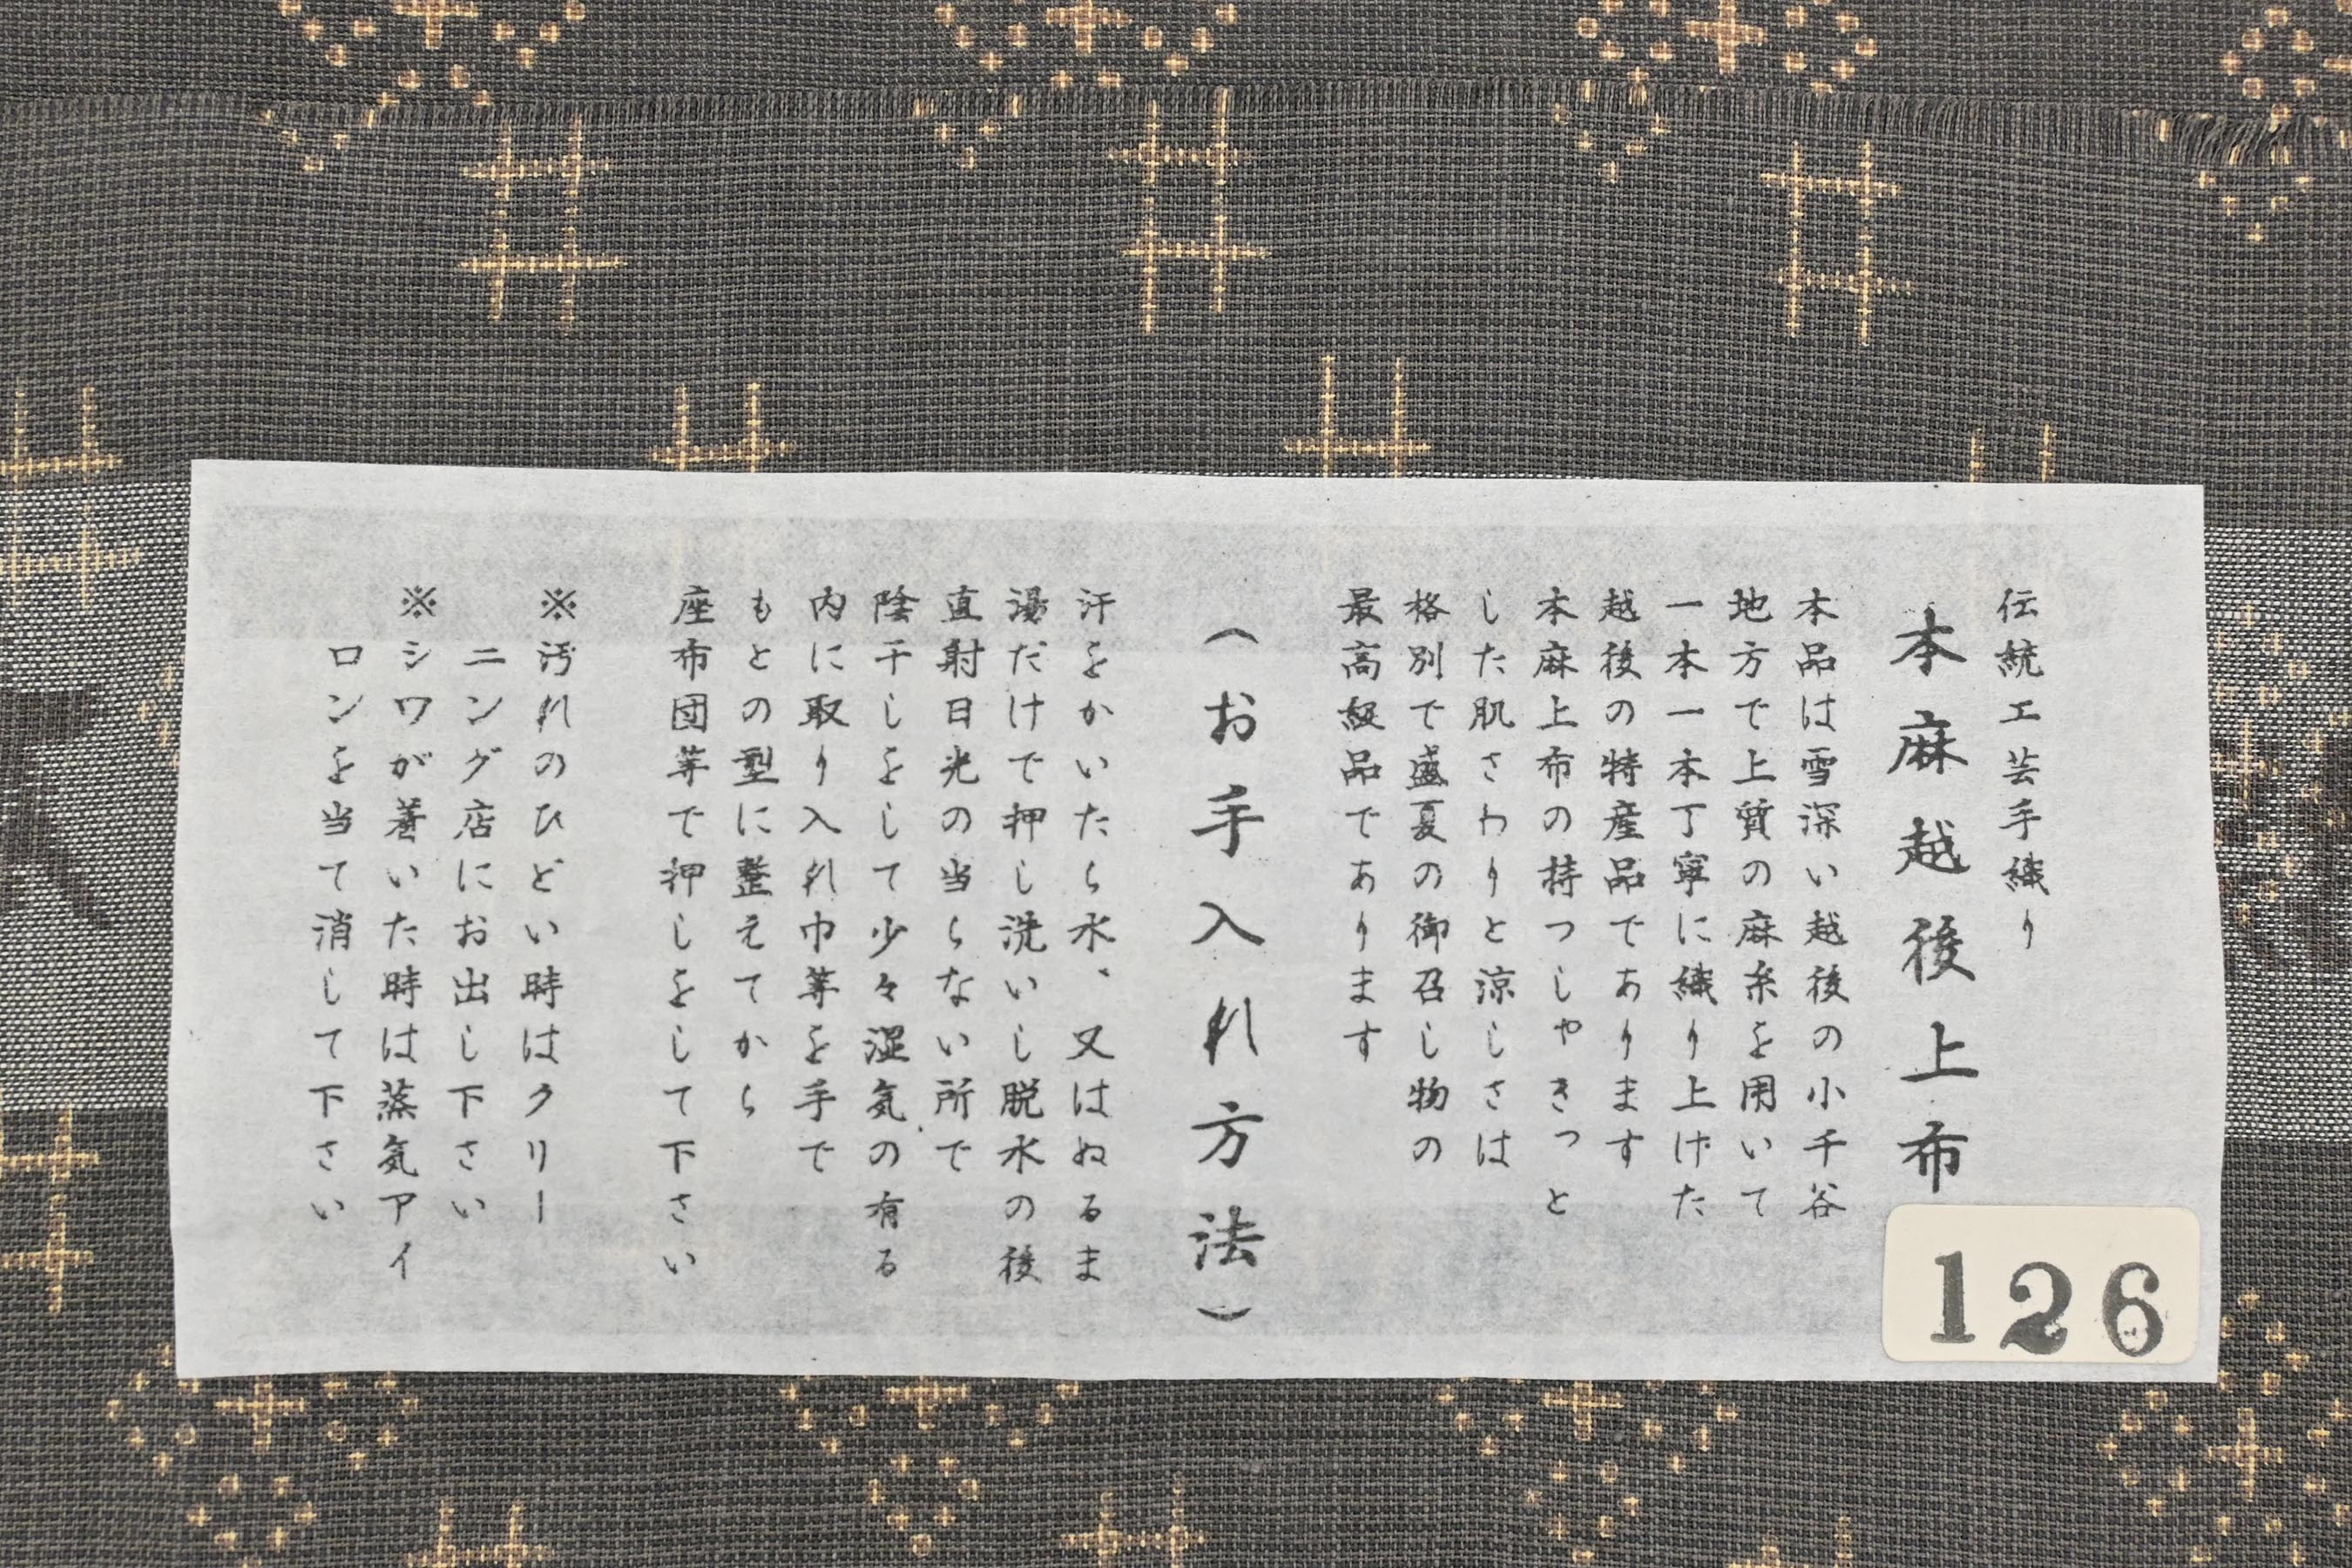 伝統工芸手織り
本麻越後上布
本品は雪深い越後の小千谷
地方で上質の麻糸を用いて
一本一本丁寧に織り上げた
越後の特産品であります
本麻上布の持つしゃきっと
した肌さわりと涼しさは
格別で盛夏の御召し物の
最高級品であります
(お手入れ方法)
汗をかいたら水、又はぬるま
湯だけで押し洗いし脱水の後
直射日光の当らない所で
陰干しをして少々湿気の有る
内に取り入れ巾等を手で
もとの型に整えてから
座布団等で押しをして下さい
※汚れのひどい時はクリー
ニング店にお出し下さい
※シワが着いた時は蒸気アイ
ロンを当て消して下さい
126